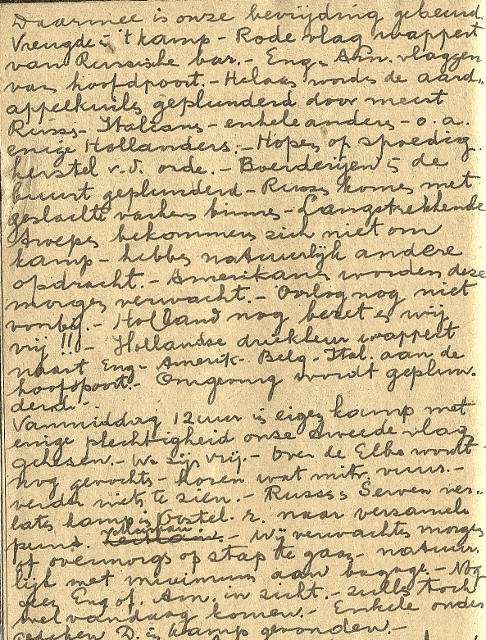 Daarmee is onze bevrijding gebeurd.
Vreugde in 't kamp - Rode vlag wappert
van Russische bar. - Eng - Am. vlaggen
van hoofdpoort - Helaas worden de aard-
appelkuilen geplunderd door meest
Russ - Italianen - enkele anderen - o.a.
enige Hollanders. - Hopen op spoedig
herstel v.d. orde. - Boerderijen in de
buurt geplunderd - Russen komen met
geslachte varkens binnen - Langstrekkende
troepen bekommeren zich niet om
kamp - hebben natuurlijk andere
opdracht. - Amerikanen worden deze
morgen verwacht. - Oorlog nog niet
voorbij - Holland nog bezet en wij
vrij !! - Hollandse driekleur wappert
naast Eng - Amerik - Belg - Ital. aan de
hoofdpoort. - Omgeving wordt geplun-
derd. -
Vanmiddag 12 uur in eigen kamp met
enige plechtigheid onze tweede vlag
gehesen. - We zijn vrij. - Over de Elbe wordt
nog gevochten - horen wat mitr. vuur. -
verder niets te zien. - Russen en Serven ver-
laten kamp in Oostel. r. naar verzamel-
punt. - Wij verwachten morgen
of overmorgen op stap te gaan - natuur-
lijk met minimum aan bagage. - Nog
geen Eng of. Am. in zicht. - zullen toch
wel vandaag komen. - Enkele onder
D. in kamp gevonden. -